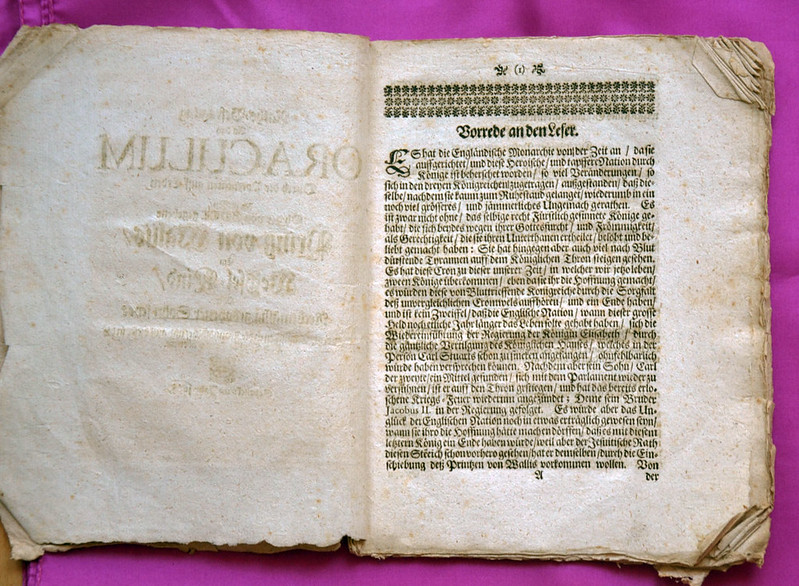 ORACULLUM
Prinz von Wallis/
(1)
Vorrede an den Leser.
ES hat die Engländische Monarchie von der Zeit an / da sie
auffgerichtet / und diese Heroische / und tapffere Nation durch
Könige ist beherschet worden / so viel Veränderungen / so
sich in den dreyen Königreichen zugetragen / außgestanden / daß die-
selbe / nachdem sie kaum zum Ruhestand gelanget / wiederumb in ein
noch viel grösseres / und jämmerliches Ungemach gerathen. Es
ist zwar nicht ohne / das selbige recht Fürstlich gesinnete Könige ge-
habt / die sich beydes wegen ihrer Gottesfurcht / und Frömmigkeit /
als Gerechtigkeit / die sie ihren Unterthanen ertheilet / belobt und be-
liebt gemacht haben: Sie hat hingegen aber auch viel nach Blut
dürstende Tyrannen auff dem Königlichen Thron steigen gesehen.
Es hat diese Cron zu dieser unserer Zeit / in welcher wir jetzo leben /
zween Könige überkommen / eben da sie ihr die Hoffnung gemacht /
es würden diese von Bluttrieffende Königreiche durch die Sorgfalt
deß unvergleichlichen Cromwels auffhören / und ein Ende haben /
und ist kein Zweiffel / daß die Englische Nation / wann dieser grosse
Held noch etliche Jahr länger das Leben solte gehabt haben / sich die
Wiedereinführung der Regierung der Königin Elisabeth / durch
die gäntzliche Vertilgung des Königlichen Hauses / welches in der
Person Carl Stuarts schon zu sincken angefangen / ohnfehlbarlich
würde haben versprechen können. Nachdem aber sein Sohn / Carl
der zweyte / ein Mittel gefunden / sich mit dem Parlament wieder zu
versühnen / ist er auff den Thron gestiegen / und hat das bereits erlo-
schene Kriegs-Feuer wiederum angezündet; Deme sein Bruder
Jacobus II. in der Regierung gefolget. Es würde aber das Un-
glück der Englischen Nation noch in etwas erträglich gewesen seyn /
wann sie ihro die Hoffnung hätte machen dörffen / daß es mit diesem
letztern König ein Ende haben würde / weil aber der Jesuitische Rath
diesen Streich schon vorhero gesehen / hat er demselben / durch die Ein-
schiebung deß Printzen von Wallis vorkommen wollen. Von
A der